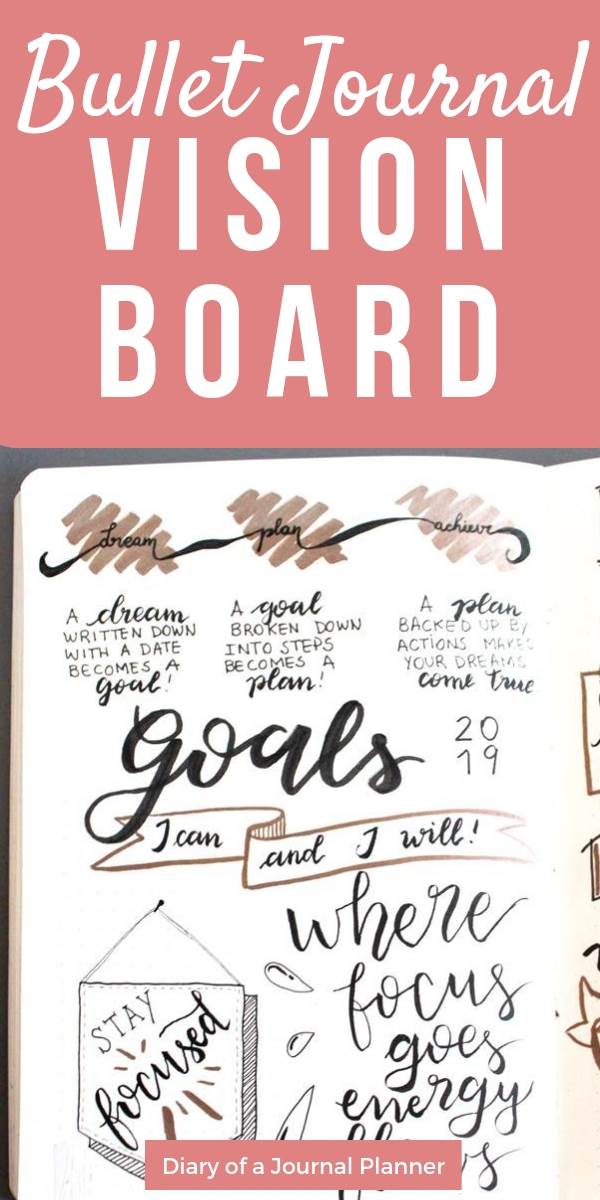 Bullet Journal
VISION
BOARD
dream plan achieve
A dream
WRITTEN DOWN
WITH A DATE
BECOMES A
goal!
A goal
BROKEN DOWN
INTO STEPS
BECOMES A
plan!
A plan
BACKED UP BY
ACTIONS MAKES
YOUR DREAMS
come true
goals
20
19
I can and I will!
STAY
focused
where
focus
goes
energy
Diary of a Journal Planner